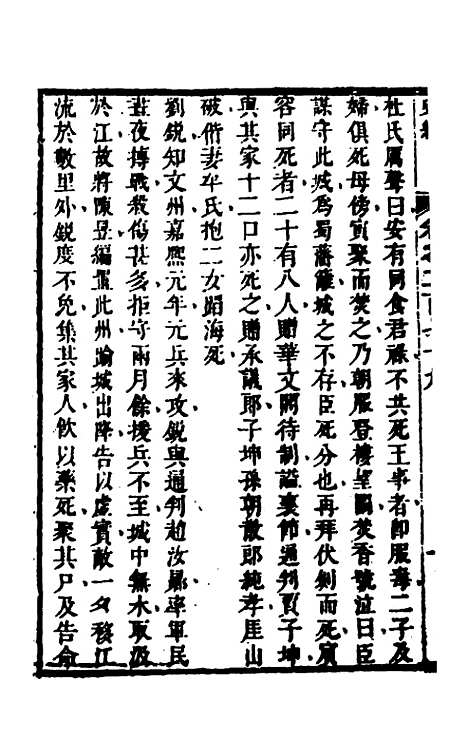 杜氏厲聲曰安有同食君祿不共死王事者卽服毒二子及
婦俱死母傍寅聚而焚之乃朝服登樓望闕焚香號泣曰臣
謀守此城爲蜀藩籬城之不存臣死分也再拜伏劍而死賓
容同死者二十有八人贈華文閣待制謚襄節通判賈子坤
與其家十二口亦死之贈承議郎子坤孫朝散郎純孝厓山
破偕妻牟氏抱二女蹈海死
劉銳知文州嘉熙元年元兵來攻銳與通判趙汝曏率軍民
晝夜搏戰殺傷甚多拒守兩月餘援兵不至城中無水取汲
於江故將陳昱編置此州踰城出降告以虛實敵一夕移江
流於數里外銳度不免集其家人飮以藥死聚其尸及告命